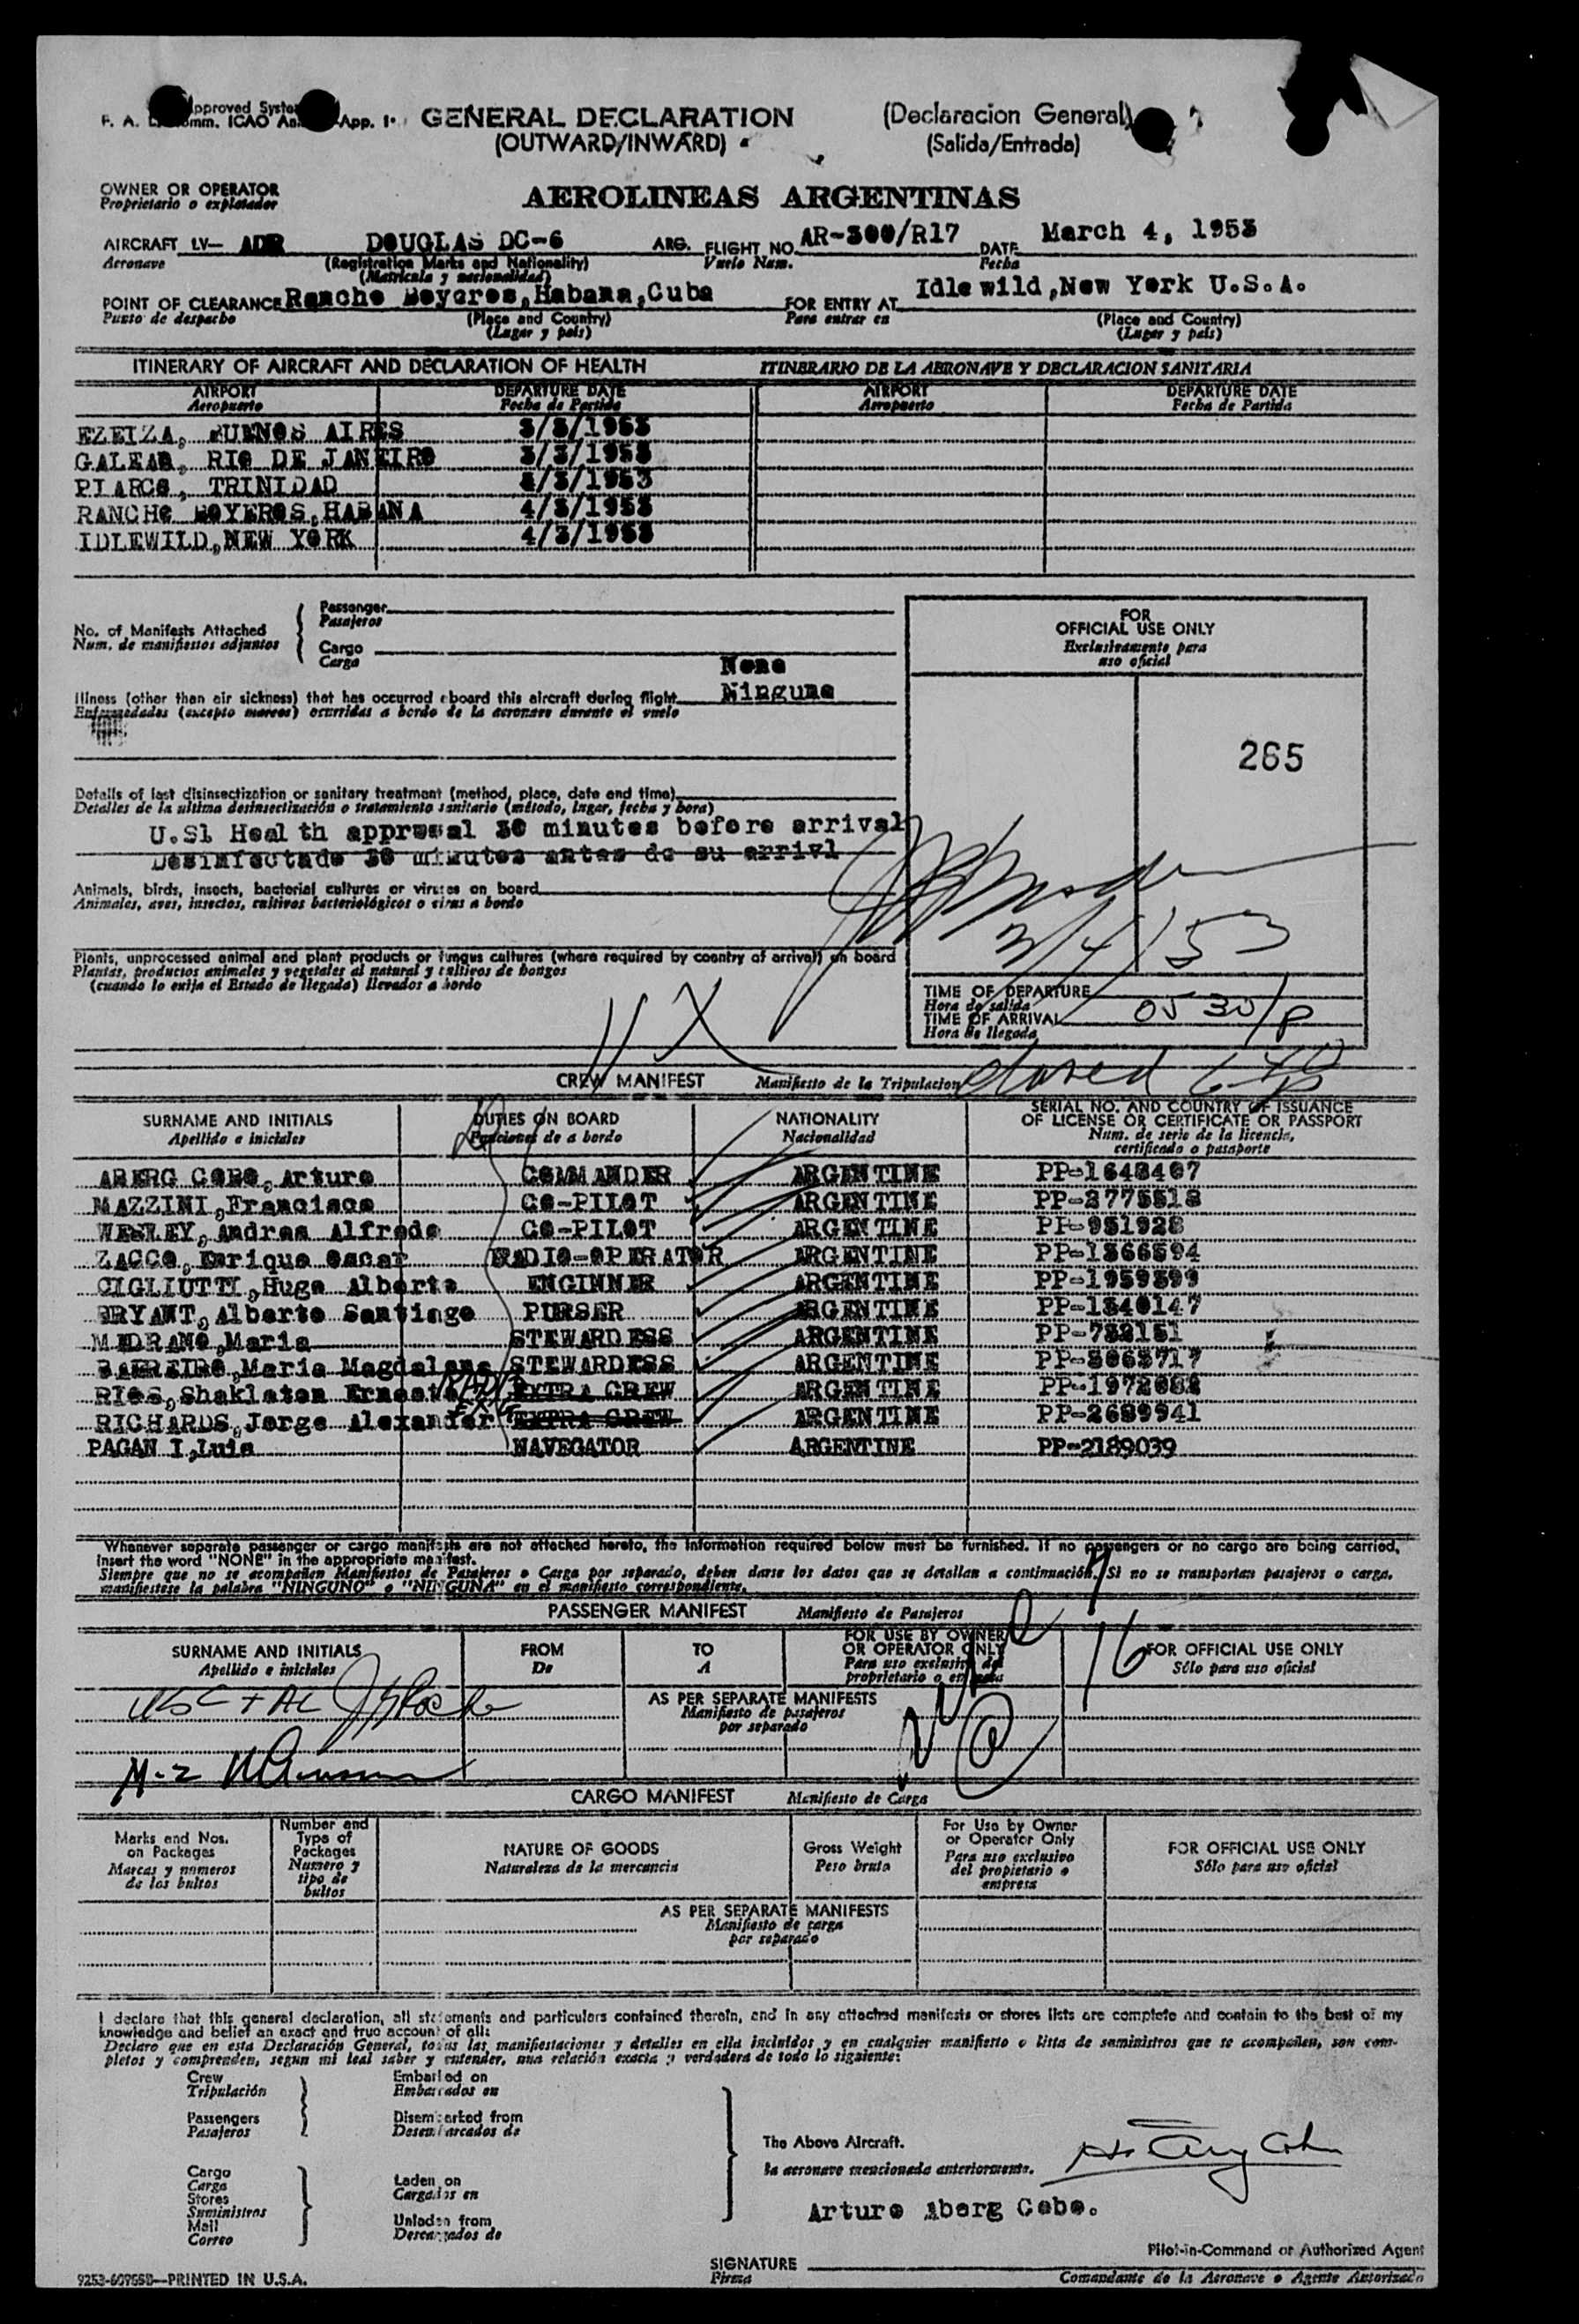 GENERAL DECLARATION (Declaracion General)
(OUTWARD/INWARD) (Salida/Entrada)
OWNER OR OPERATOR
Proprietario o explotador
AEROLINEAS ARGENTINAS
AIRCRAFT LV— ADR DOUGLAS DC-6 ARG. FLIGHT NO. AR-300/R17 DATE March 4, 1953
Aeronave (Registration Marks and Nationality) Vuelo Num. Fecha
(Matricula y nacionalidad)
POINT OF CLEARANCE Rancho Boyeros, Habana, Cuba FOR ENTRY AT Idlewild, New York U.S.A.
Punto de despacho (Place and Country) Para entrar en (Place and Country)
(Lugar y país) (Lugar y país)
ITINERARY OF AIRCRAFT AND DECLARATION OF HEALTH ITINERARIO DE LA AERONAVE Y DECLARACION SANITARIA
AIRPORT DEPARTURE DATE AIRPORT DEPARTURE DATE
Aeropuerto Fecha de Partida Aeropuerto Fecha de Partida
EZEIZA, BUENOS AIRES 3/3/1953
GALEAO, RIO DE JANEIRO 3/3/1953
PIARCO, TRINIDAD 4/3/1953
RANCHO BOYEROS, HABANA 4/3/1953
IDLEWILD, NEW YORK 4/3/1953
No. of Manifests Attached
Num. de manifiestos adjuntos
Passenger
Pasajeros
Cargo
Carga
FOR
OFFICIAL USE ONLY
Exclusivamente para
uso oficial
None
Illness (other than air sickness) that has occurred aboard this aircraft during flight Ninguna
Enfermedades (excepto mareos) ocurridas a bordo de la aeronave durante el vuelo
265
Details of last disinsectization or sanitary treatment (method, place, date and time)
Detalles de la ultima desinsectización o tratamiento sanitario (método, lugar, fecha y hora)
U.Sl Health appruval 30 minutes before arrival
Desinfectado 30 minutos antes de su arrivl
Animals, birds, insects, bacterial cultures or viruses on board
Animales, aves, insectos, cultivos bacteriológicos o virus a bordo
3/4/53
Plants, unprocessed animal and plant products or fungus cultures (where required by country of arrival) on board
Plantas, productos animales y vegetales al natural y cultivos de hongos
(cuando lo exija el Estado de llegada) llevados a bordo
TIME OF DEPARTURE
Hora de salida
TIME OF ARRIVAL 0530/P
Hora de llegada
11 X
CREW MANIFEST Manifiesto de la Tripulacion closed 640 P
SURNAME AND INITIALS DUTIES ON BOARD NATIONALITY SERIAL NO. AND COUNTRY OF ISSUANCE
Apellido e iniciales Funciones de a bordo Nacionalidad OF LICENSE OR CERTIFICATE OR PASSPORT
Num. de serie de la licencia,
certificado o pasaporte
ABERG COBO, Arturo COMMANDER ARGENTINE PP-1643407
MAZZINI, Francisco CO-PILOT ARGENTINE PP-2775518
WESLEY, Andres Alfredo CO-PILOT ARGENTINE PP-951928
ZACCO, Enrique Oscar RADIO-OPERATOR ARGENTINE PP-1366594
CIGLIUTTI, Hugo Alberto ENGINNER ARGENTINE PP-1959399
BRYANT, Alberto Santiago PURSER ARGENTINE PP-1340147
MEDRANO, Maria STEWARDESS ARGENTINE PP-732151
BARREIRO, Maria Magdalena STEWARDESS ARGENTINE PP-3063717
RIOS, Shaklaton Ernesto EXTRA CREW ARGENTINE PP-1972082
RICHARDS, Jorge Alexander EXTRA CREW ARGENTINE PP-2689941
PAGANI, Luis NAVEGATOR ARGENTINE PP-2189039
Whenever separate passenger or cargo manifests are not attached hereto, the information required below must be furnished. If no passengers or no cargo are being carried,
insert the word "NONE" in the appropriate manifest.
Siempre que no se acompañen Manifiestos de Pasajeros o Carga por separado, deben darse los datos que se detallan a continuación. Si no se transportan pasajeros o carga,
manifiestese la palabra "NINGUNO" o "NINGUNA" en el manifiesto correspondiente.
PASSENGER MANIFEST Manifiesto de Pasajeros
SURNAME AND INITIALS FROM TO FOR USE BY OWNER 16 FOR OFFICIAL USE ONLY
Apellido e iniciales De A OR OPERATOR ONLY Sólo para uso oficial
Para uso exclusivo del
proprietario o empresa
AS PER SEPARATE MANIFESTS
Manifiesto de pasajeros
por separado
M-2
CARGO MANIFEST Manifiesto de Carga
Marks and Nos.
on Packages
Marcas y números
de los bultos
Number and
Type of
Packages
Numero y
tipo de
bultos
NATURE OF GOODS
Naturaleza de la mercancia
Gross Weight
Peso bruto
For Use by Owner
or Operator Only
Para uso exclusivo
del propietario o
empresa
FOR OFFICIAL USE ONLY
Sólo para uso oficial
AS PER SEPARATE MANIFESTS
Manifiesto de carga
por separado
I declare that this general declaration, all statements and particulars contained therein, and in any attached manifests or stores lists are complete and contain to the best of my
knowledge and belief an exact and true account of all:
Declaro que en esta Declaración General, todas las manifiestaciones y detalles en ella incluídos y en cualquier manifiesto o lista de suministros que se acompañen, son com-
pletos y comprenden, segun mi leal saber y entender, una relación exacta y verdadera de todo lo siguiente:
Crew Embarked on
Tripulación Embarcados en
Passengers Disembarked from
Pasajeros Desembarcados de
Cargo
Carga
Stores
Suministros
Mail
Correo
Laden on
Cargados en
Unladen from
Descargados de
The Above Aircraft.
la aeronave mencionada anteriormente.
Arturo Aberg Cobo.
Pilot-in-Command or Authorized Agent
SIGNATURE
Firma Comandante de la Aeronave o Agente Autorizado
9253-60955D—PRINTED IN U.S.A.